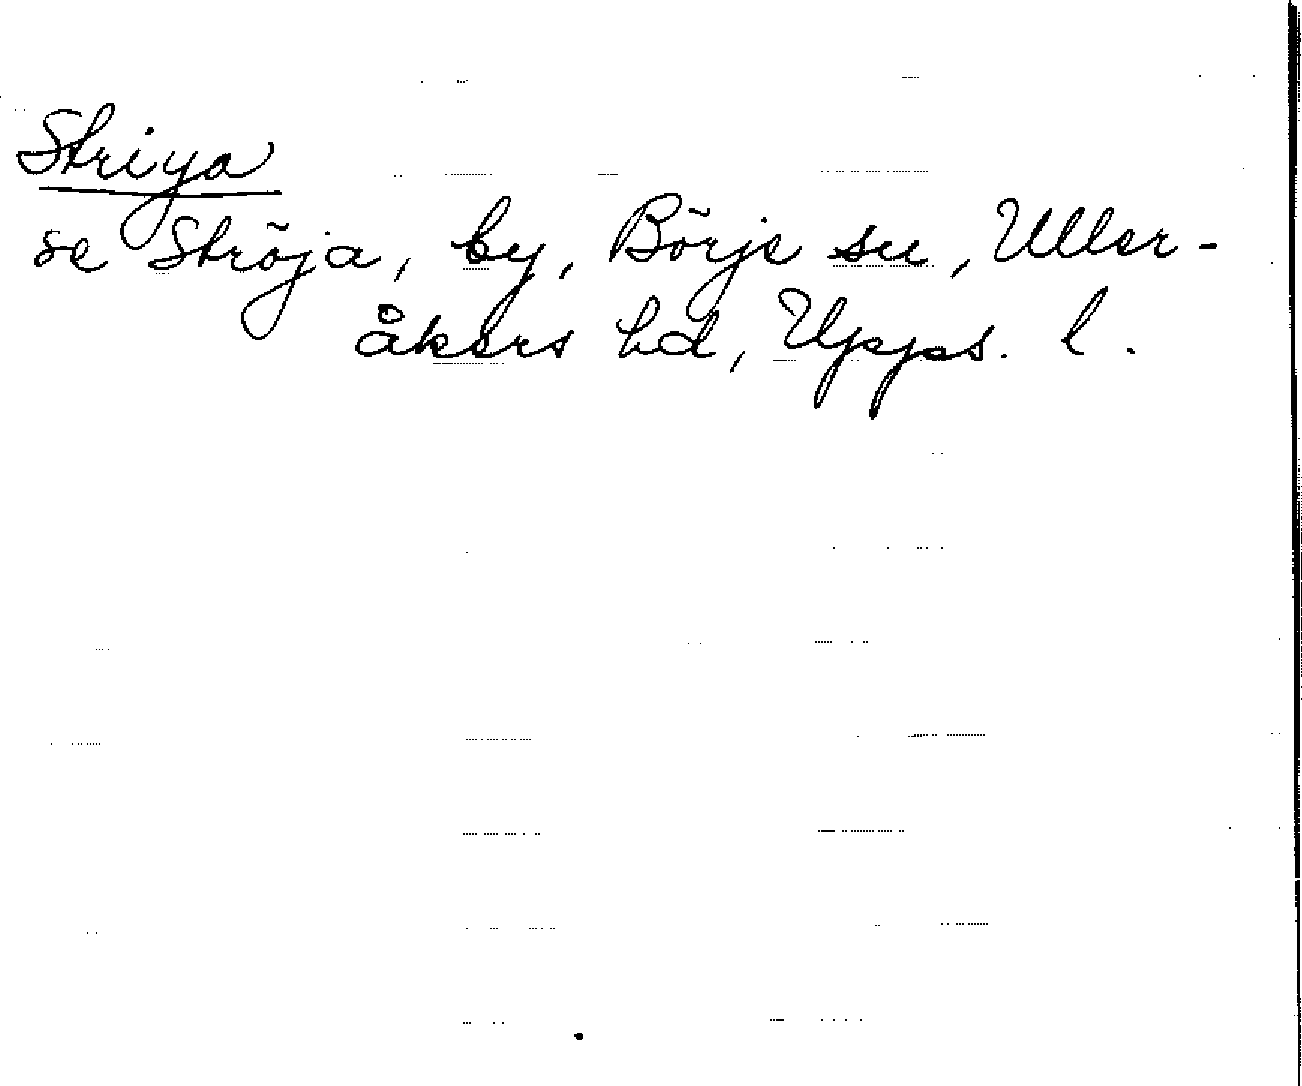 Striya
se Ströja, by, Börje sn, Uller-
åkers hd, Upps. l.